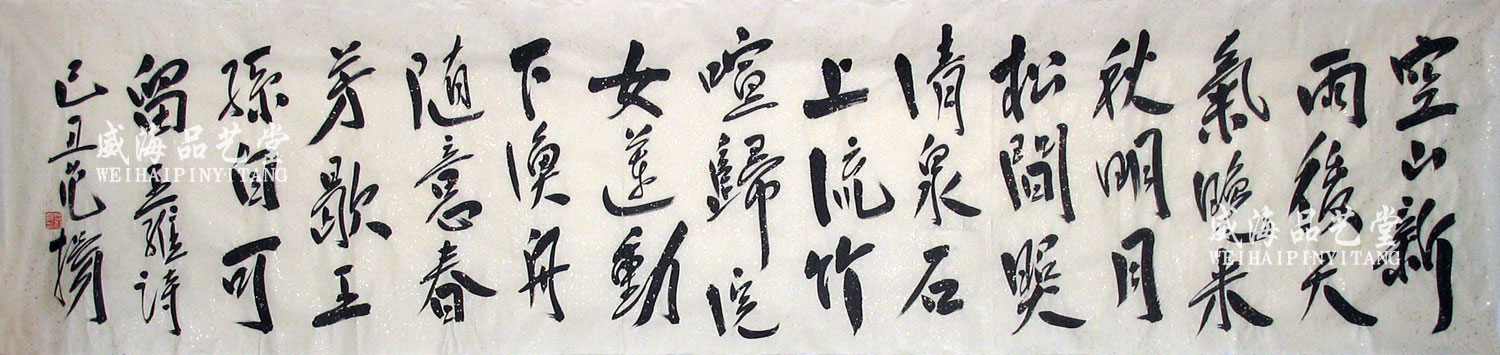 空山新
雨後天
氣晚来
秋明月
松間照
清泉石
上流竹
喧歸浣
女蓮動
下漁舟
随意春
芳歇王
孫自可
留王維诗
己丑
威海品艺堂
WEIHAIPINYITANG
威海品艺堂
WEIHAIPINYITANG